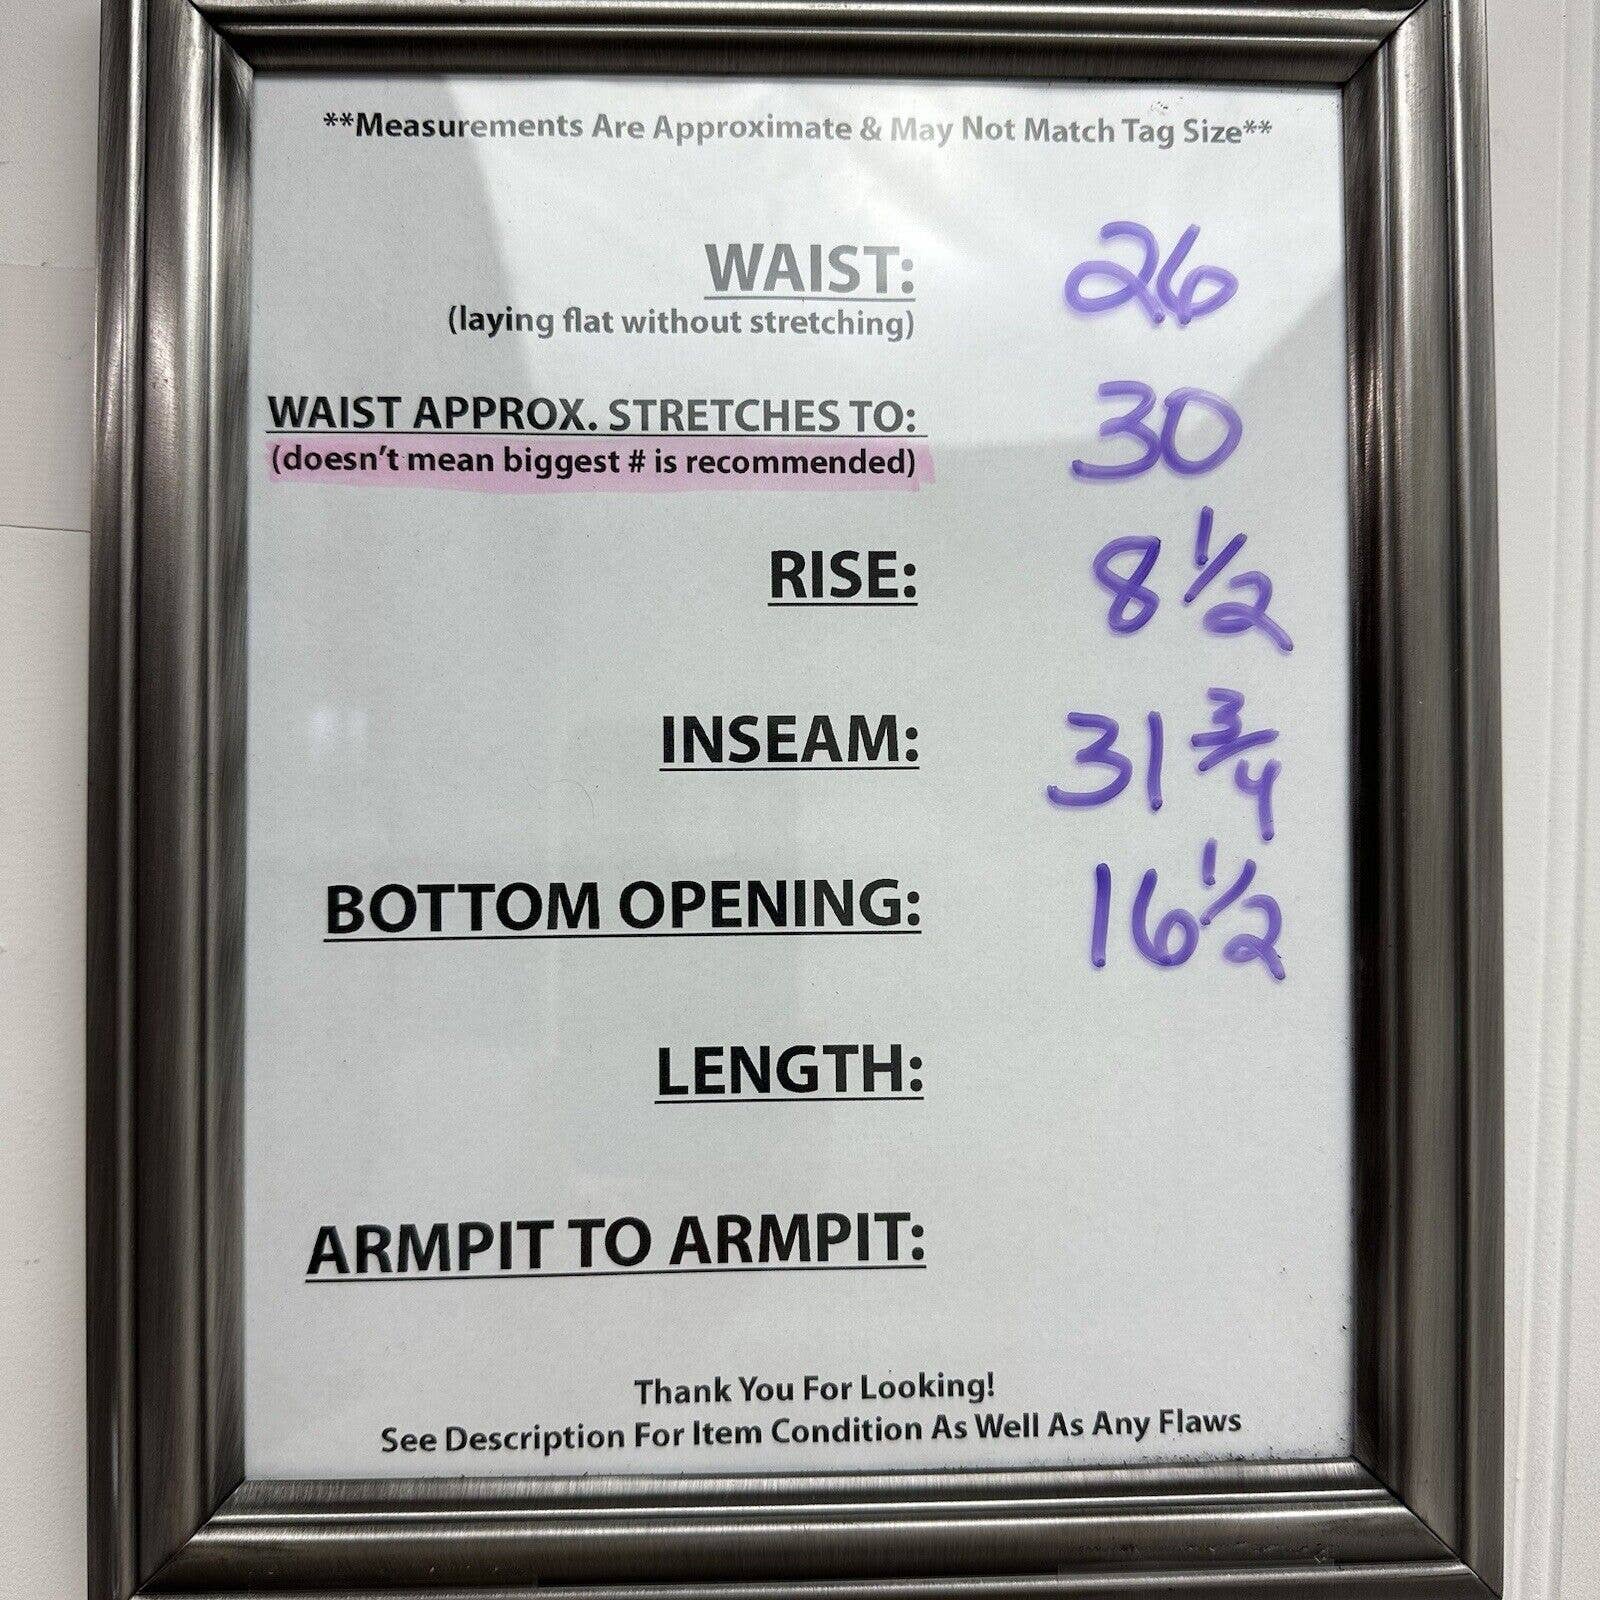 **Measurements Are Approximate & May Not Match Tag Size**
WAIST: 26
(laying flat without stretching)
WAIST APPROX. STRETCHES TO: 30
(doesn't mean biggest # is recommended)
RISE: 8 1/2
INSEAM: 31 3/4
BOTTOM OPENING: 16 1/2
LENGTH:
ARMPIT TO ARMPIT:
Thank You For Looking!
See Description For Item Condition As Well As Any Flaws